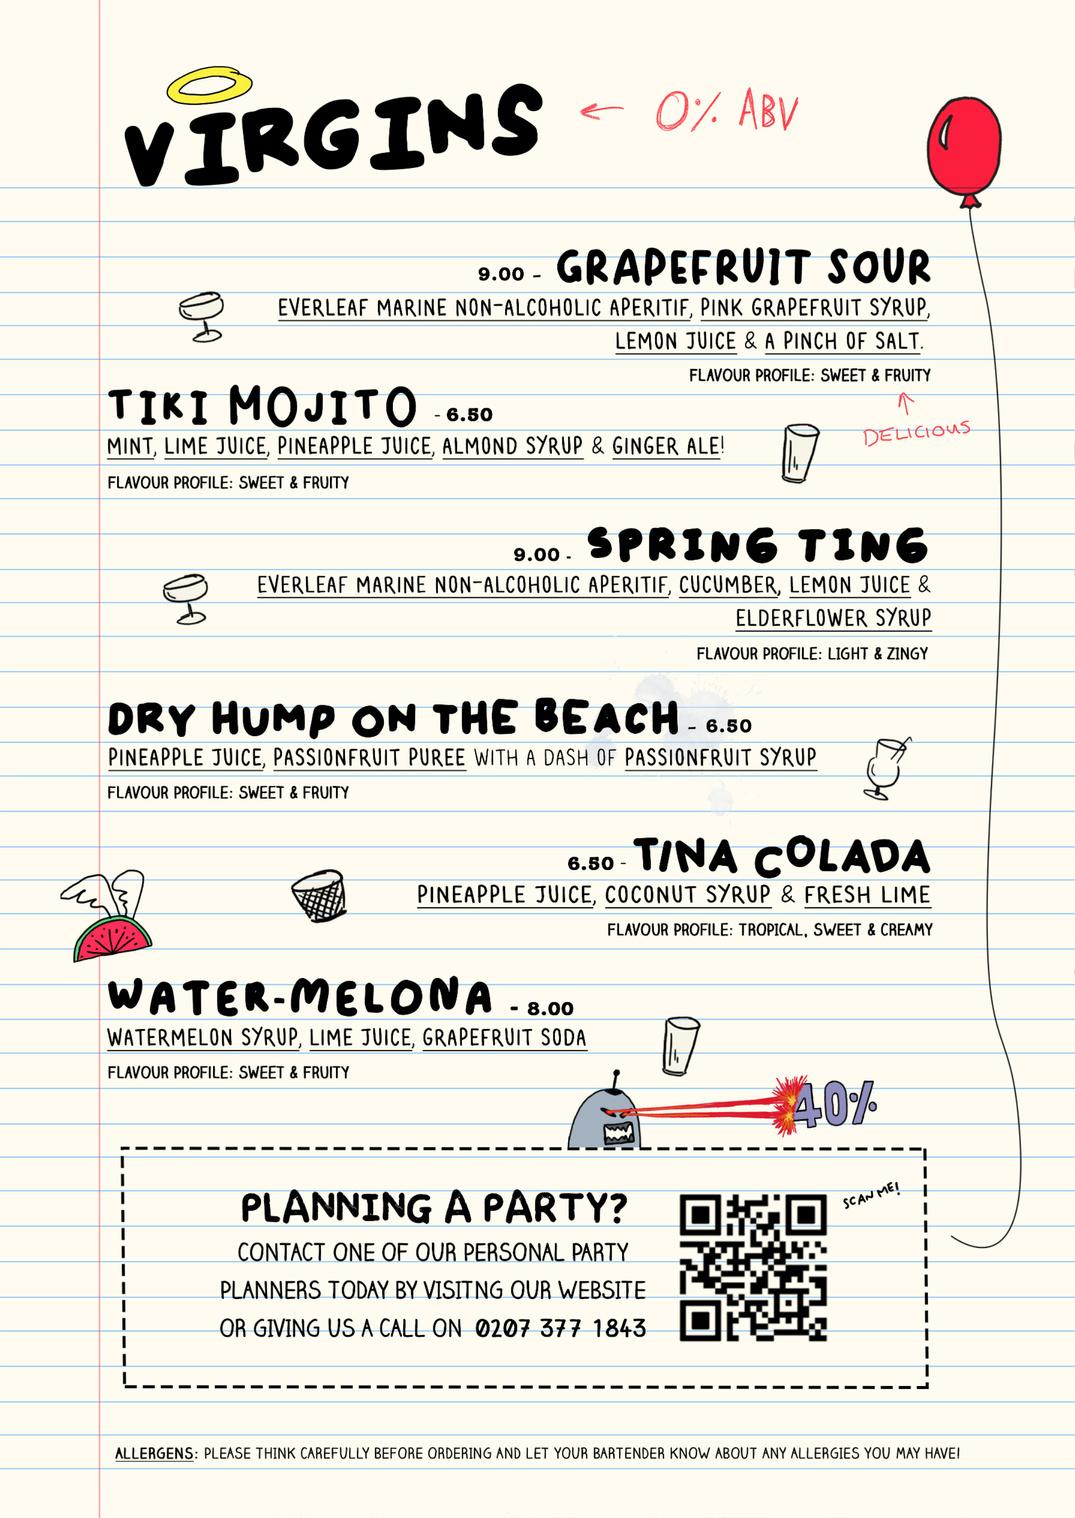 VIRGINS ← 0% ABV
9.00 - GRAPEFRUIT SOUR
EVERLEAF MARINE NON-ALCOHOLIC APERITIF, PINK GRAPEFRUIT SYRUP,
LEMON JUICE & A PINCH OF SALT.
FLAVOUR PROFILE: SWEET & FRUITY
DELICIOUS
TIKI MOJITO - 6.50
MINT, LIME JUICE, PINEAPPLE JUICE, ALMOND SYRUP & GINGER ALE!
FLAVOUR PROFILE: SWEET & FRUITY
9.00 - SPRING TING
EVERLEAF MARINE NON-ALCOHOLIC APERITIF, CUCUMBER, LEMON JUICE &
ELDERFLOWER SYRUP
FLAVOUR PROFILE: LIGHT & ZINGY
DRY HUMP ON THE BEACH - 6.50
PINEAPPLE JUICE, PASSIONFRUIT PUREE WITH A DASH OF PASSIONFRUIT SYRUP
FLAVOUR PROFILE: SWEET & FRUITY
6.50 - TINA COLADA
PINEAPPLE JUICE, COCONUT SYRUP & FRESH LIME
FLAVOUR PROFILE: TROPICAL, SWEET & CREAMY
WATER-MELONA - 8.00
WATERMELON SYRUP, LIME JUICE, GRAPEFRUIT SODA
FLAVOUR PROFILE: SWEET & FRUITY
40%
PLANNING A PARTY?
SCAN ME!
CONTACT ONE OF OUR PERSONAL PARTY
PLANNERS TODAY BY VISITNG OUR WEBSITE
OR GIVING US A CALL ON 0207 377 1843
ALLERGENS: PLEASE THINK CAREFULLY BEFORE ORDERING AND LET YOUR BARTENDER KNOW ABOUT ANY ALLERGIES YOU MAY HAVE!